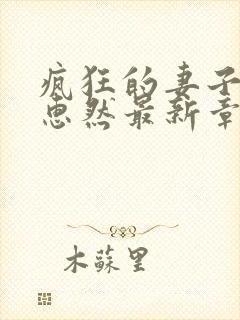 疯狂的妻子
思然最新章
木蘇里